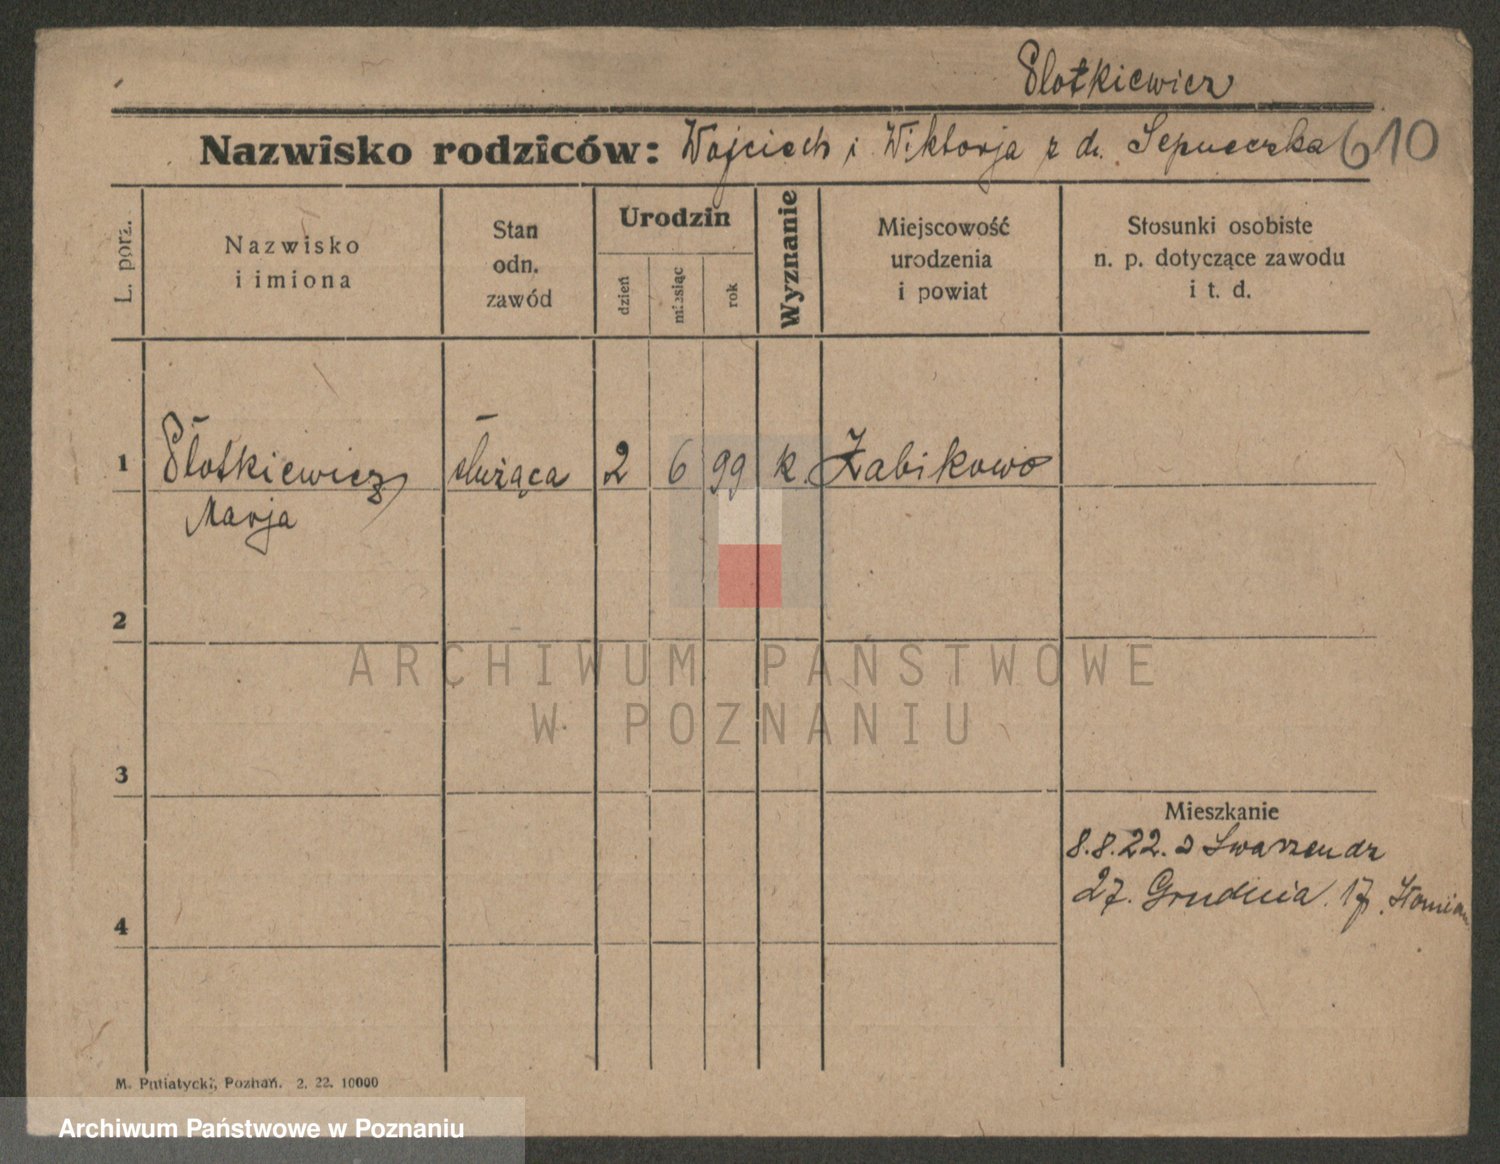 Płotkiewicz
Nazwisko rodziców: Wojciech i Wiktorja z d. 610
L. porz.
Nazwisko
i imiona
Stan
odn.
zawód
Urodzin
dzień
miesiąc
rok
Wyznanie
Miejscowość
urodzenia
i powiat
Stosunki osobiste
n. p. dotyczące zawodu
i t. d.
1 Płotkiewicz służąca 2 6 99 k. Żabikowo
Marja
2
ARCHIWUM PAŃSTWOWE
W POZNANIU
3
Mieszkanie
8.8.22. z Swarzendz
27. Grudnia 17.
4
M. Putiatycki, Poznań. 2. 22. 10000
Archiwum Państwowe w Poznaniu